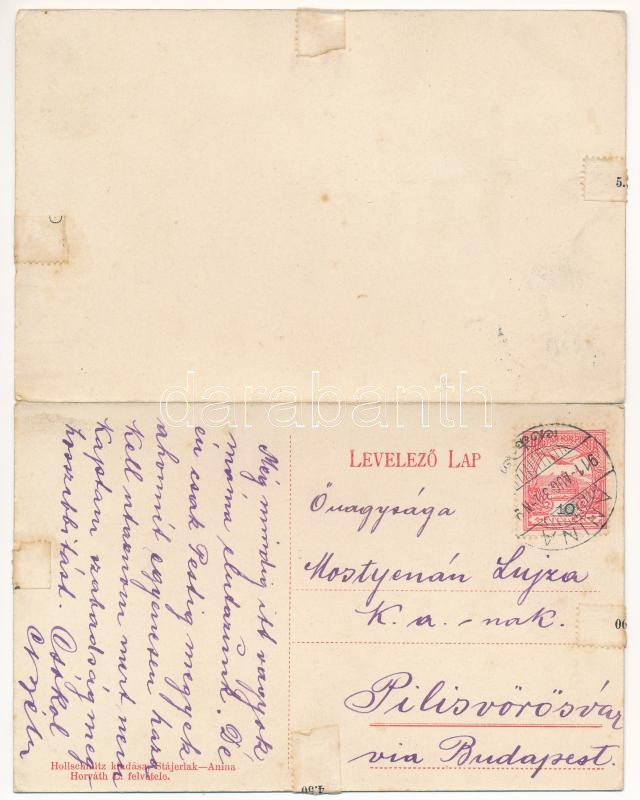 5.
darabanth
LEVELEZŐ LAP
Őnagysága
Mostyenán Lujza
K. a. - nak.
Pilisvörösvár
via Budapest.
ANINA
911
10
06
4.50
Még mindig itt vagyok
máma elutazunk. De
én csak Pestig megyek
ahonnit egyenesen haza
kell utaznom mert nem
kaptam szabadság meg-
hosszabbitást. Csókol
Hollschütz kiadása, Stájerlak—Anina
Horváth felvétele.